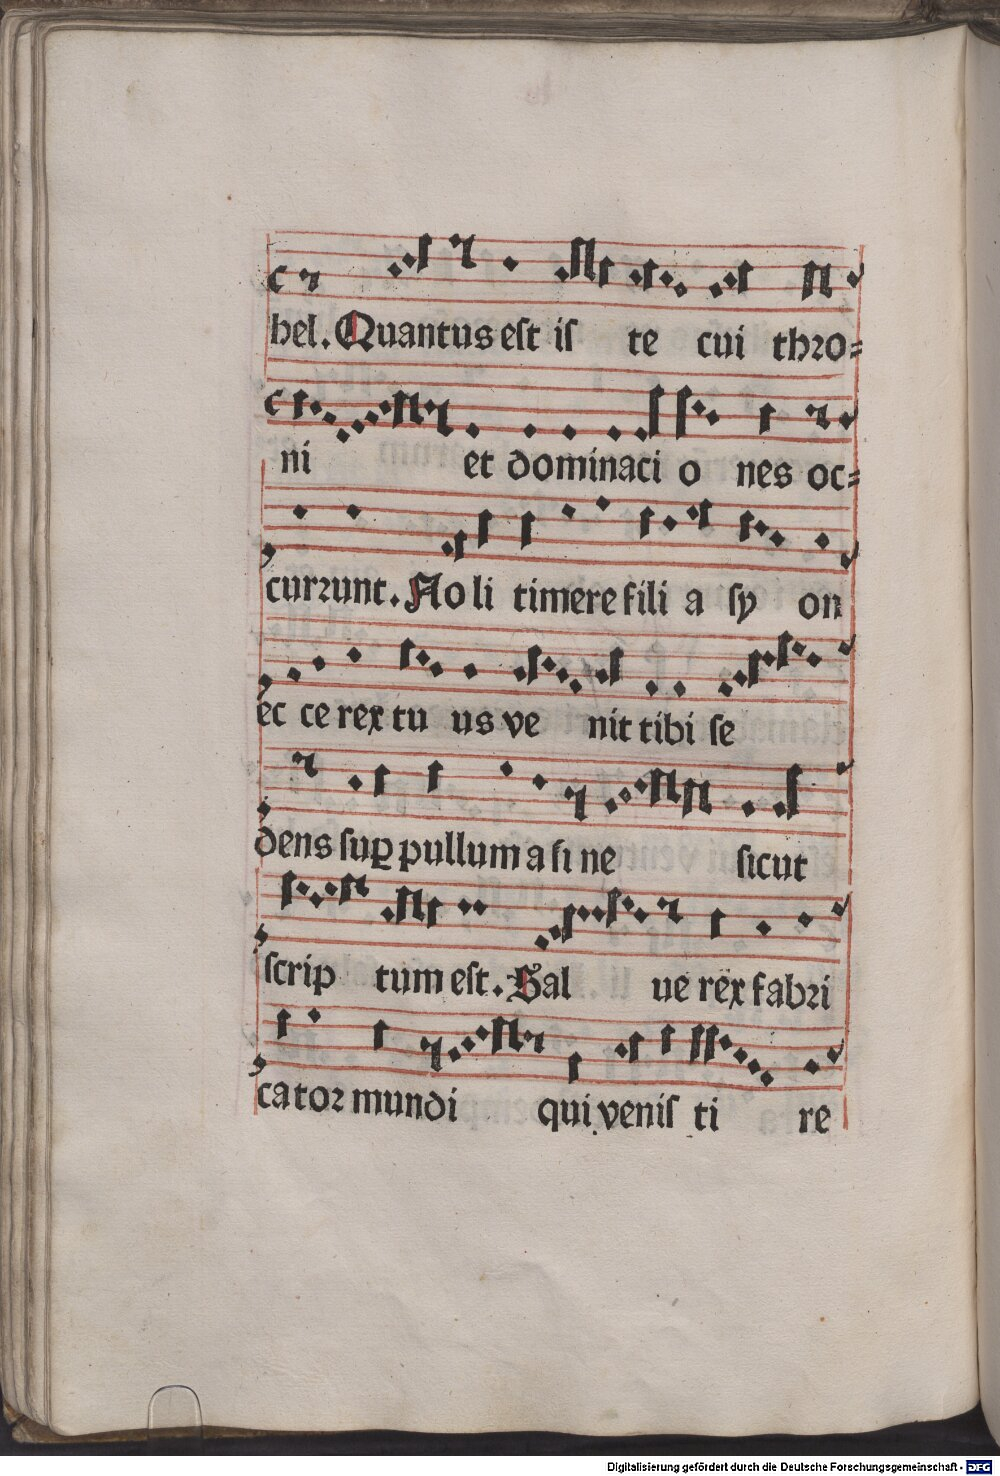 bel. Quantus est is te cui thro=
ni et dominaci o nes oc=
currunt. Noli timere fili a sy on
ec ce rex tu us ve nit tibi se
dens suꝑ pullum a si ne sicut
scrip tum est. Sal ue rex fabri
cator mundi qui venis ti re
Digitalisierung gefördert durch die Deutsche Forschungsgemeinschaft - DFG